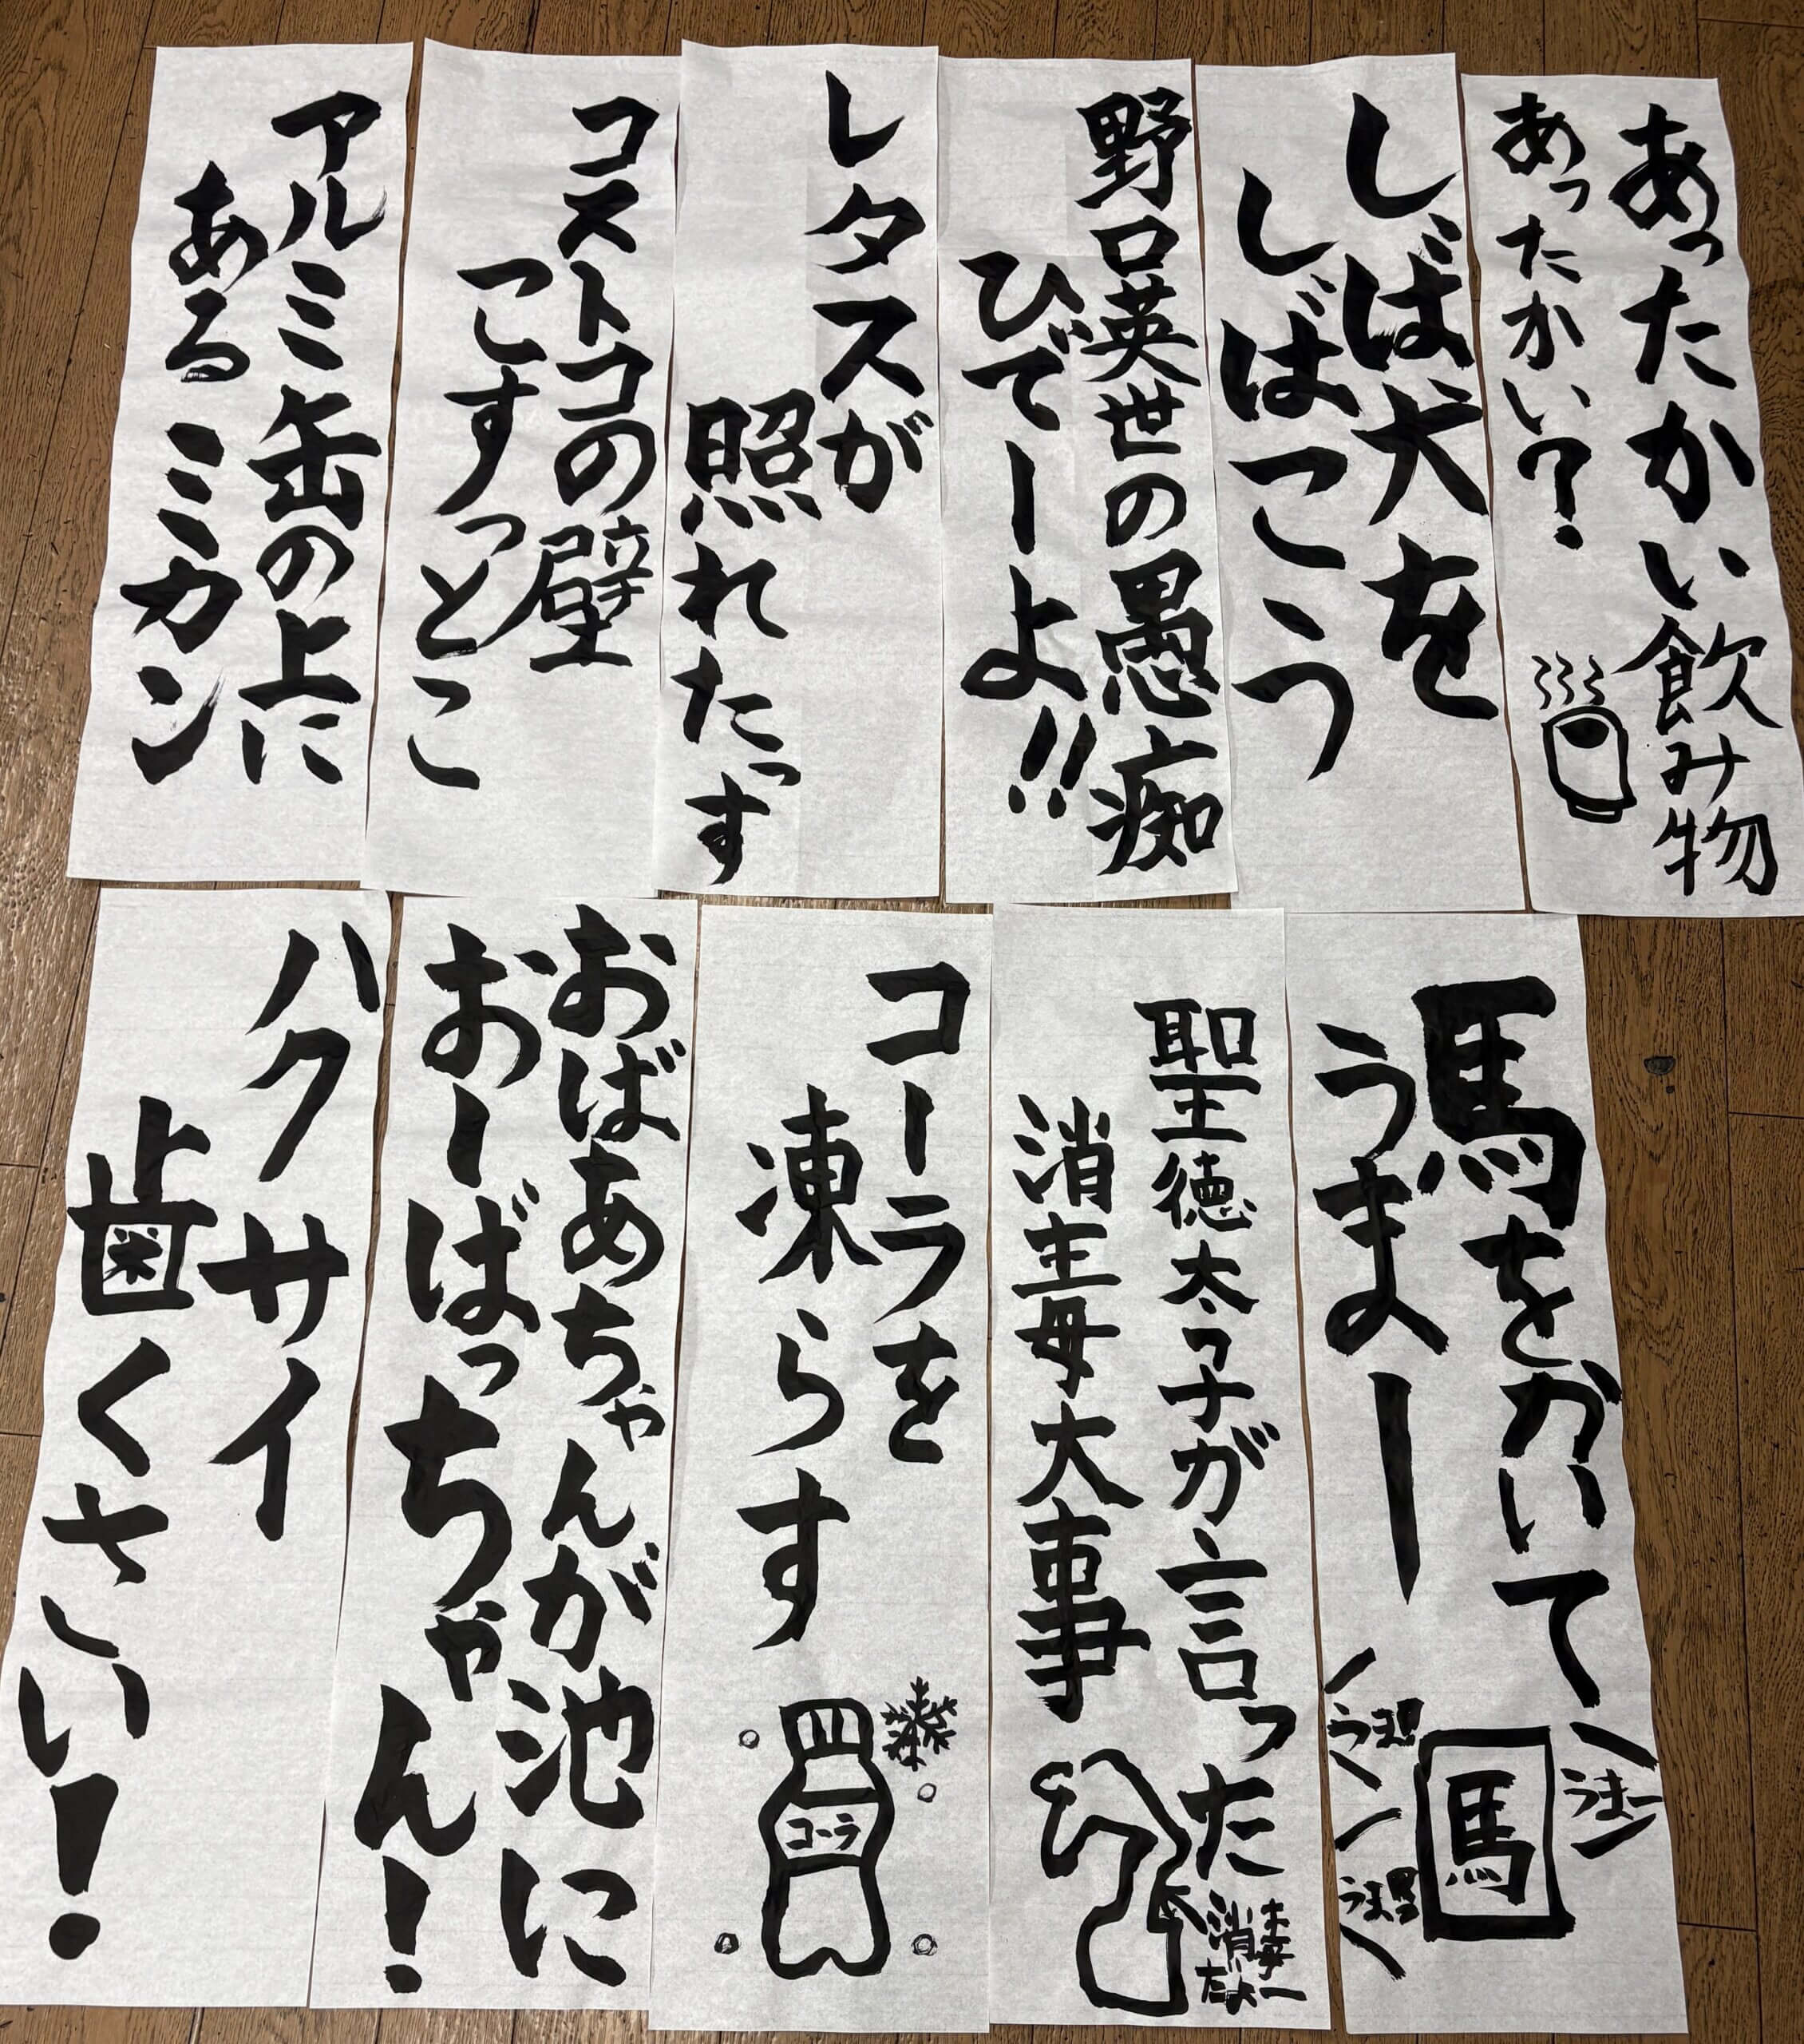 あったかい飲み物
あったかい?
しば犬を
しばこう
野口英世の愚痴
ひでーよ!!
レタスが
照れたっす
コストコの壁
こすっとこ
アルミ缶の上に
あるミカン
馬をかいて
うまー
うまー
うまっ!!
うまっ!!
馬
聖徳太子が言った
消毒大事
消毒
だよー
コーラを
凍らす
コーラ
おばあちゃんが池に
おーばっちゃん!
ハクサイ
歯くさい!